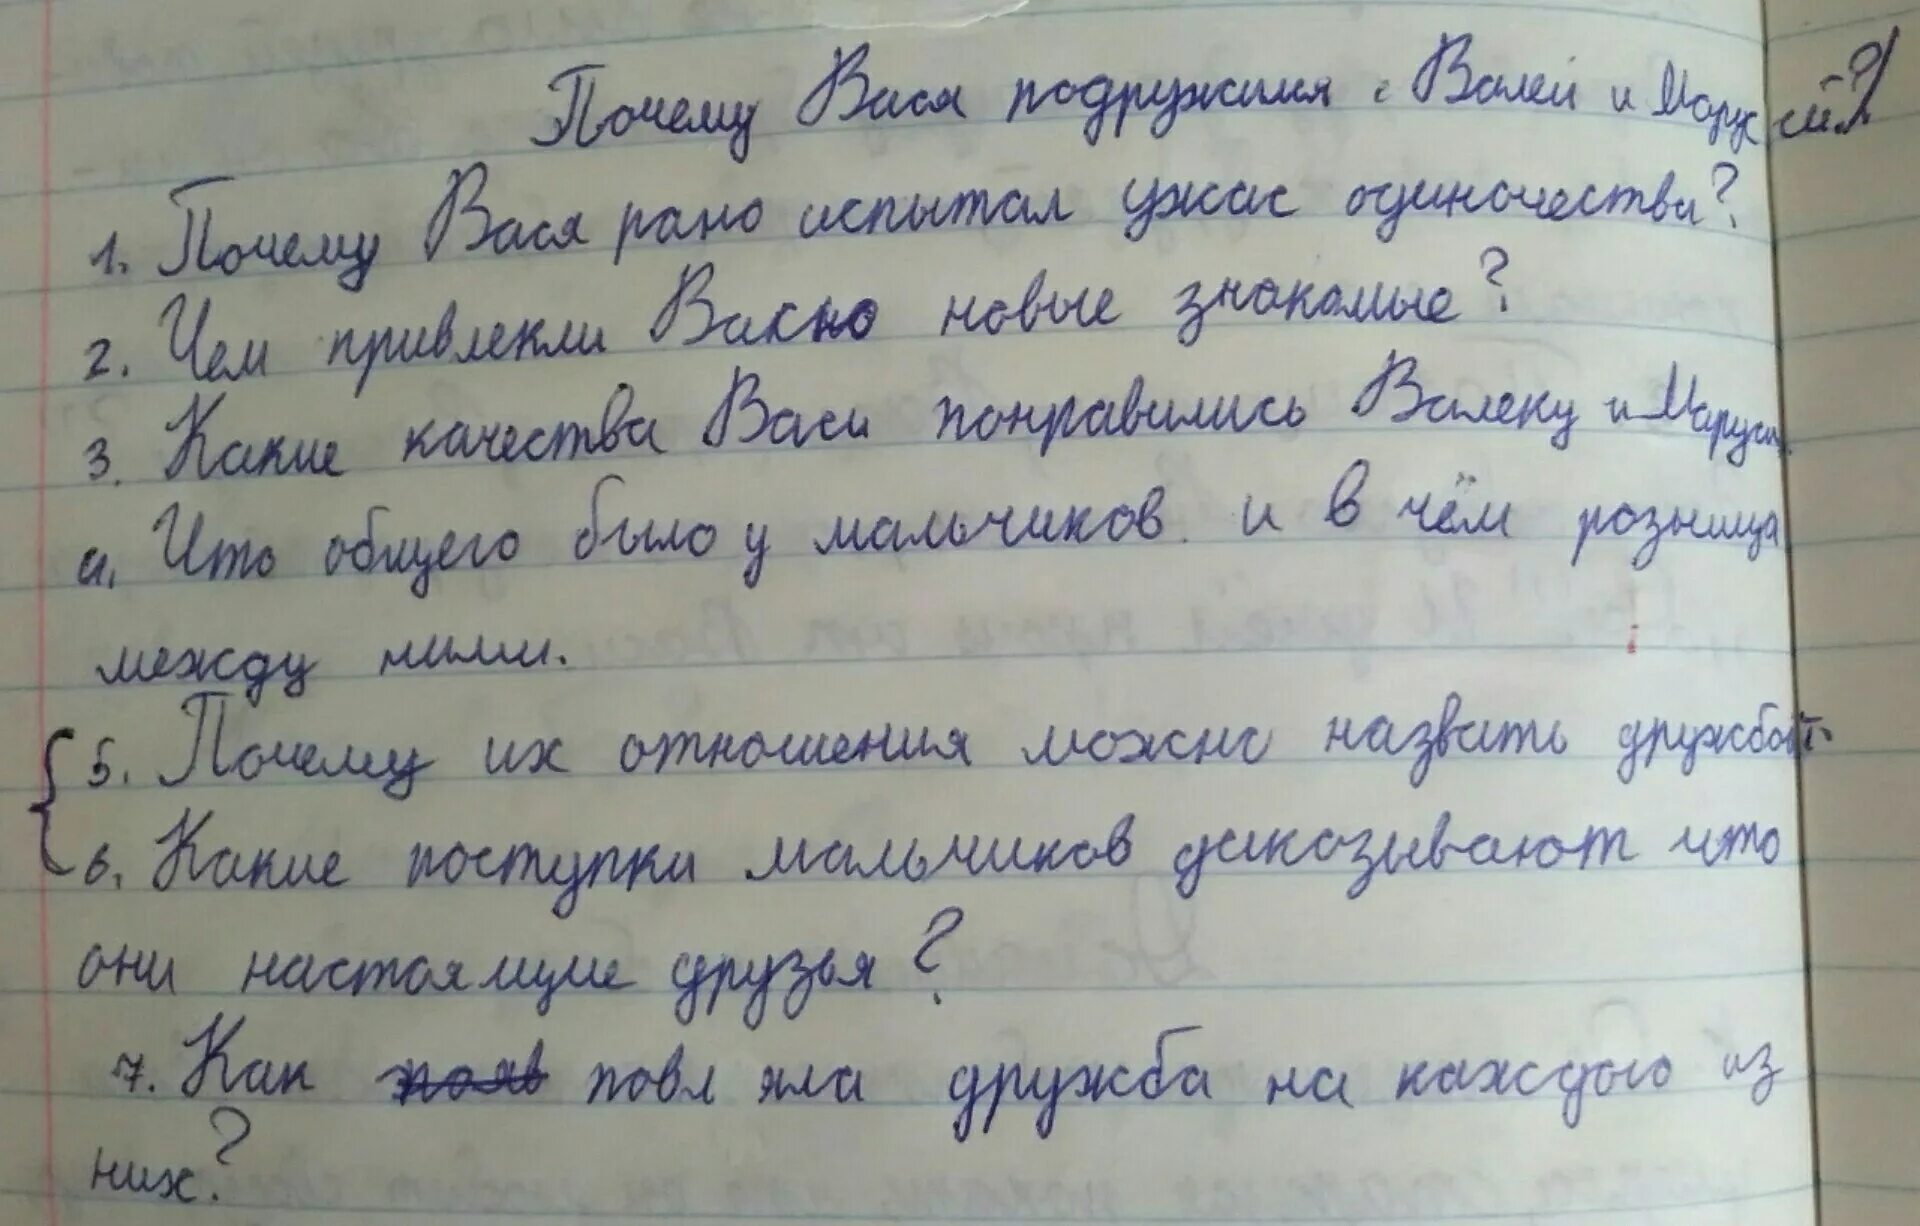 Почему Вася подружился с Валей и Марусей?
1. Почему Вася рано испытал ужас одиночества?
2. Чем привлекли Васю новые знакомые?
3. Какие качества Васи понравились Валеку и Марусе.
4. Что общего было у мальчиков и в чём розница
между ними.
5. Почему их отношения можно назвать дружбой
6. Какие поступки мальчиков доказывают что
они настоящие друзья?
7. Как повл яла дружба на каждого из
них?